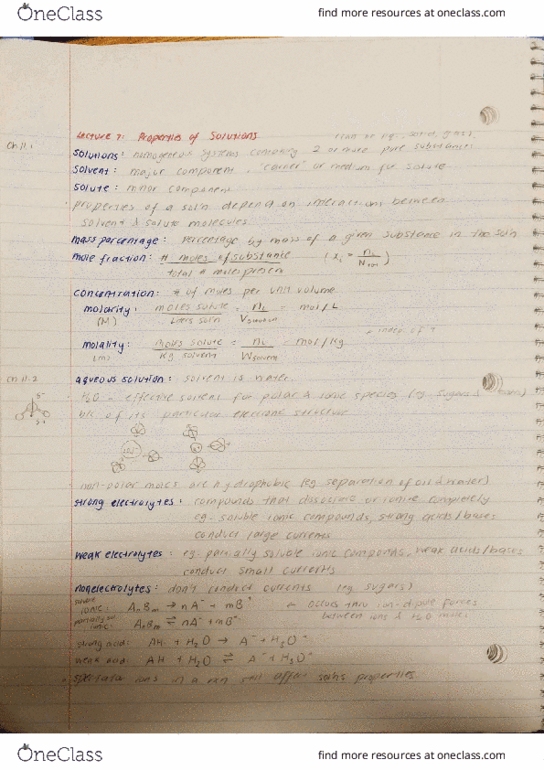 OneClass
find more resources at oneclass.com
Lecture 7: Properties of Solutions
Ch 11.1
solutions: homogeneous systems containing 2 or more pure substances
solvent: major component, "carrier" or medium for solute
solute: minor component
properties of a soln depend on interaction between
solvent & solute molecules
mass percentage: percentage by mass of a given substance in the soln
mole fraction: # moles of substance
total # moles
concentration: # of moles per unit volume
molarity: moles solute = = mol/L
(M) Liters soln
molality: moles solute = = mol/kg
(m) kg solvent
Ch 11.2
aqueous solution: solvent is water
H2O = effective solvent for polar & ionic species (eg sugars
b/c of its particular electronic structure
non-polar molecs are hydrophobic (eg separation of oil & water)
strong electrolytes: compounds that dissociate or ionize completely
eg. soluble ionic compounds, strong acids/bases
conduct large currents
weak electrolytes: eg. partially soluble ionic compounds, weak acids/bases
conduct small currents
nonelectrolytes: don't conduct currents (eg sugars)
soluble
ionic: → nA⁻ + mB⁺ occurs thru ion-dipole forces
partially sol
ionic: ⇌ nA⁻ + mB⁺ between ions & H2O molecs
strong acid: AH + H2O → A⁻ +
weak acid: AH + H2O ⇌ A⁻ +
spectator ions in a rxn still affect soln's properties
OneClass
find more resources at oneclass.com